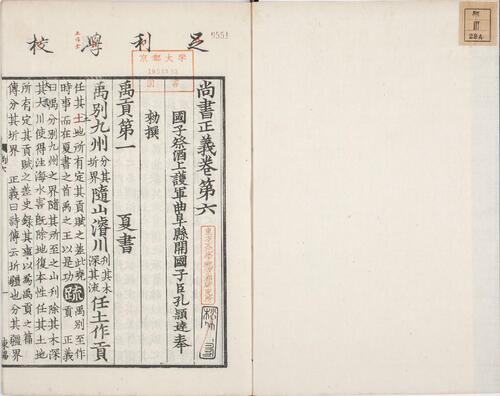 足利學校
京都大学
尚書正義卷第六
國子祭酒上護軍曲阜縣開國子臣孔穎達奉
勑撰
禹貢第一 夏書
禹別九州分其圻界隨山濬川刊其木深其流任土作貢
任其土地所有定其貢賦之差此堯時事而在夏書之首禹之王以是功疏禹別至作貢 正義
曰禹分別九州之界隨其所至之山刊除其木深
其大川使得注海水害既除地復本性任其土地
所有定其貢賦之差史錄其事以爲禹貢之篇
傳分其圻界 正義曰詩傳云圻疆也分其疆界